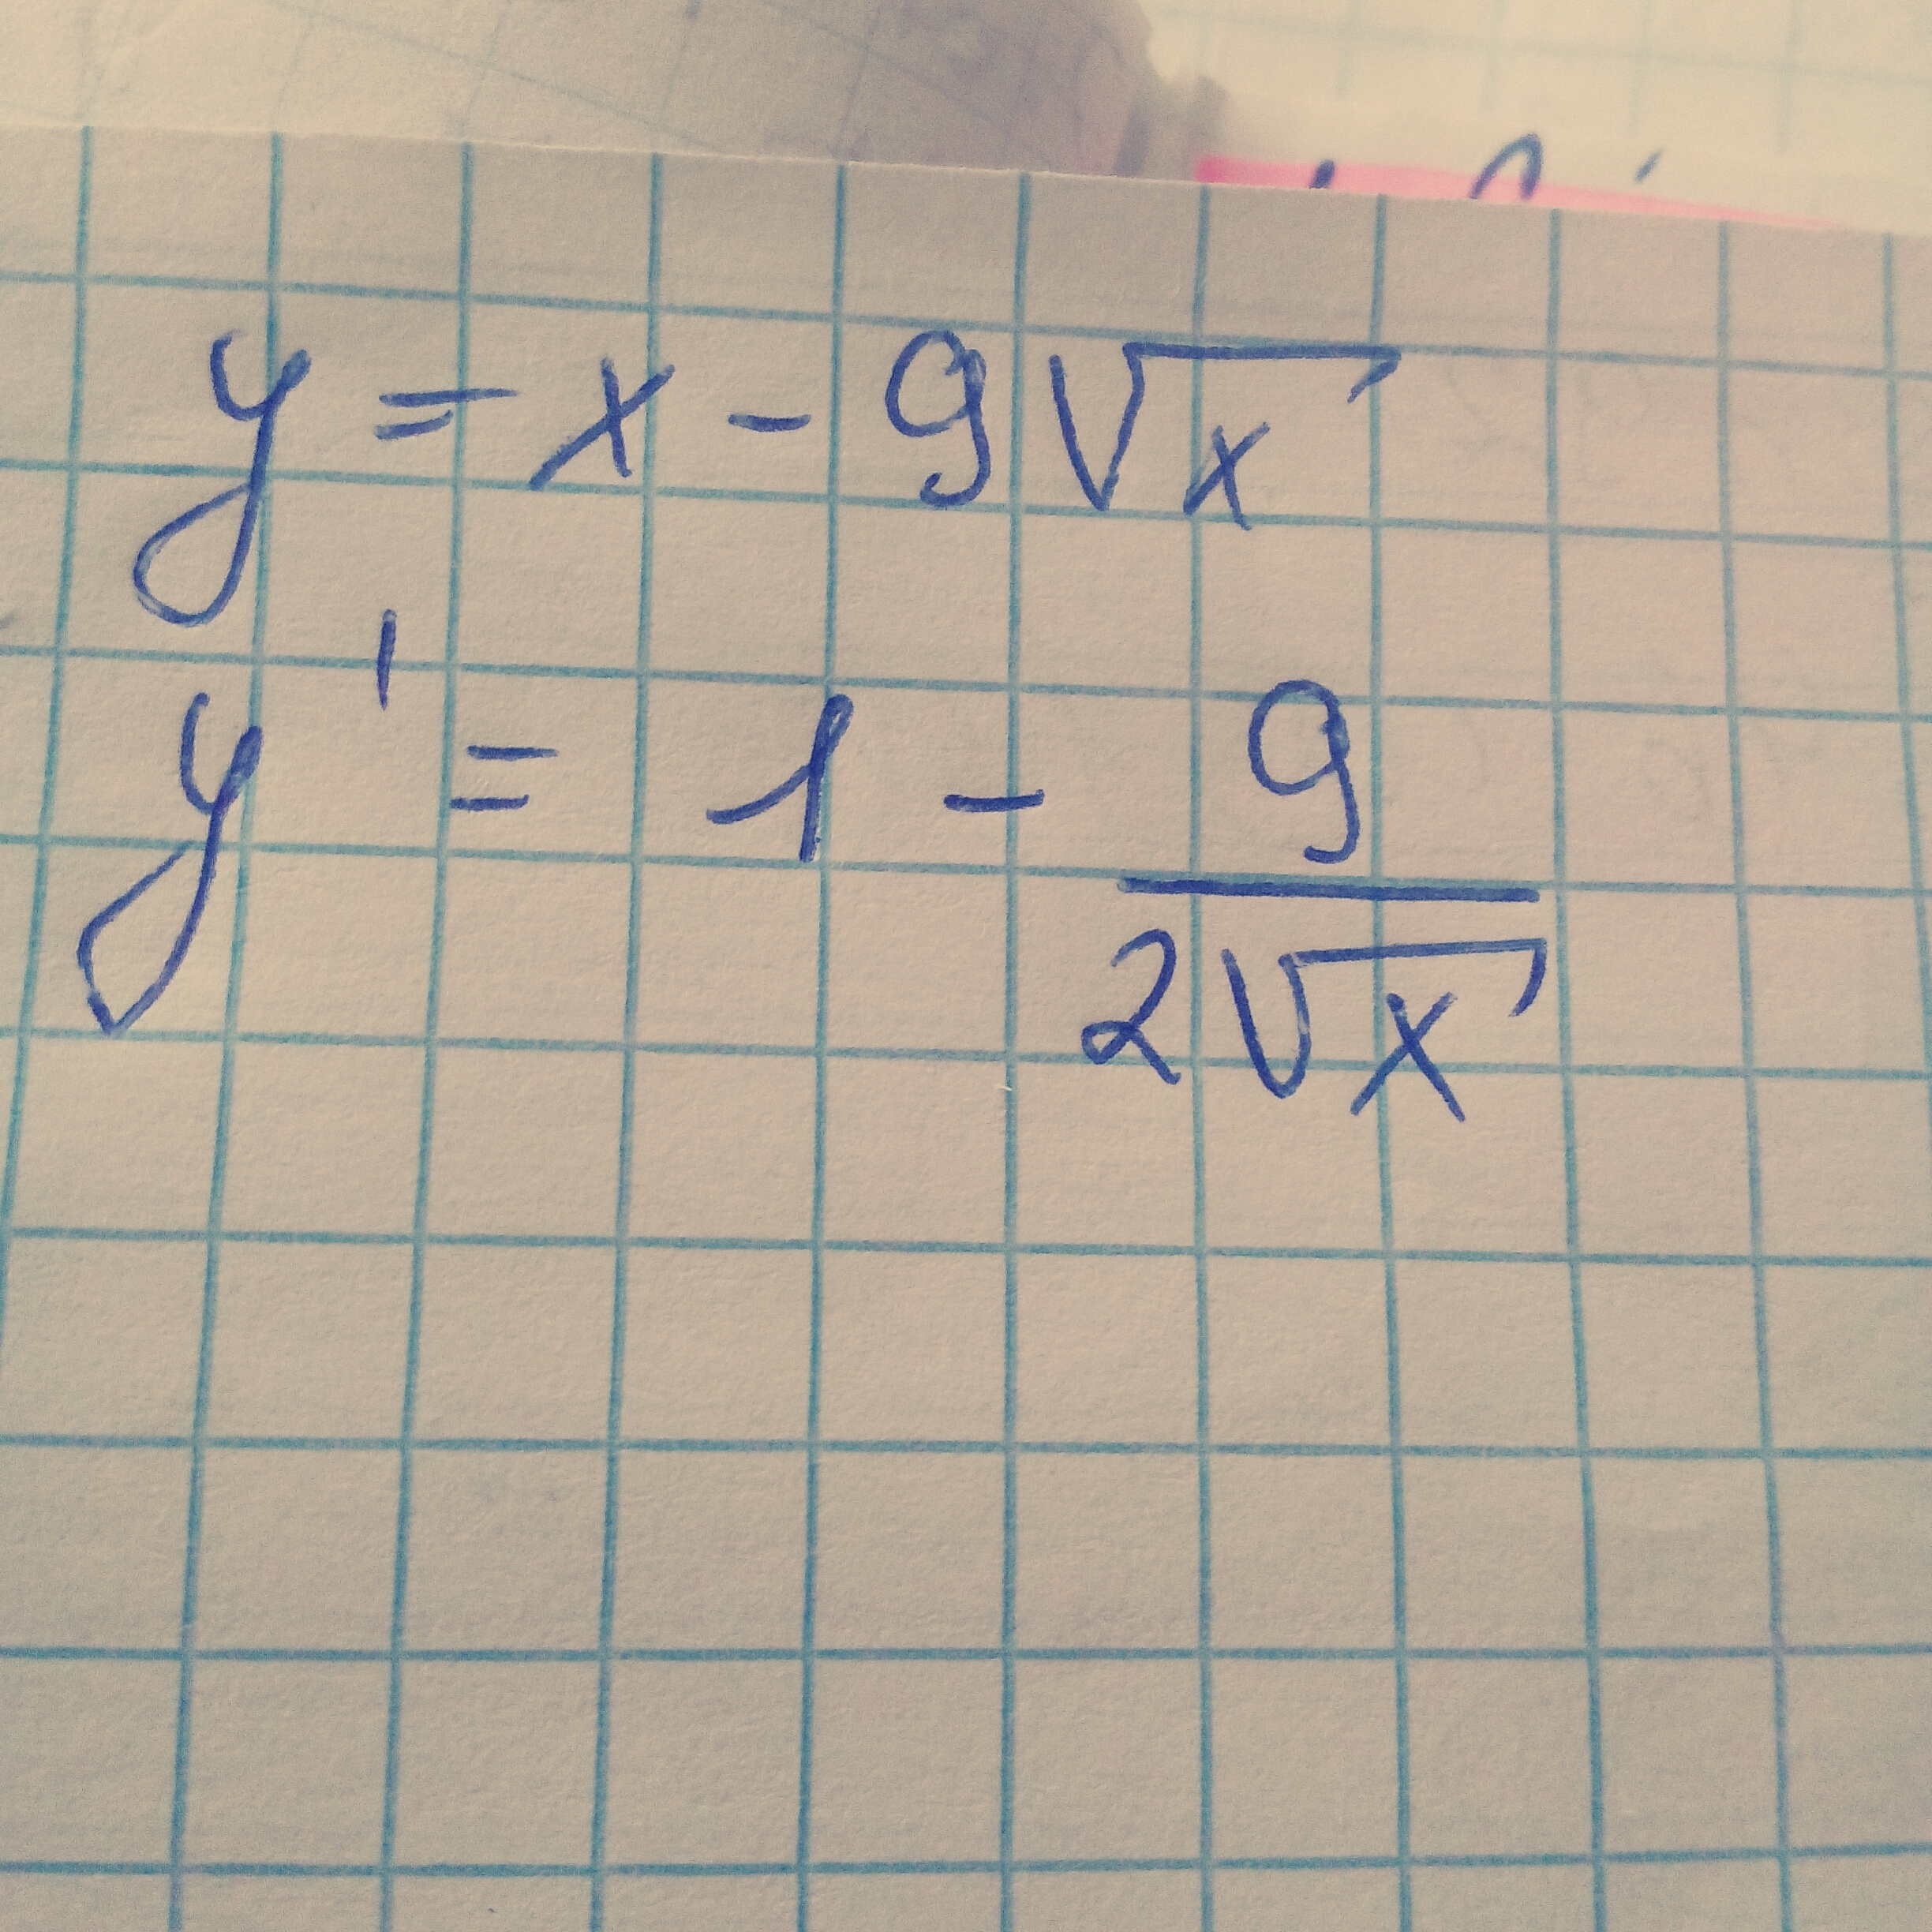 y = x - 9√x
y' = 1 - 9/(2√x)